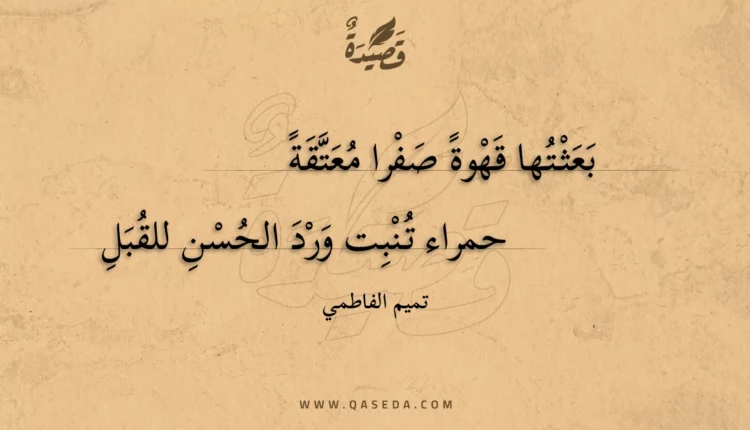 قَصِيْدَةٌ
بَعَثْتُها قَهْوةً صَفْرا مُعَتَّقَةً
حمراء تُنْبِت وَرْدَ الحُسْنِ للقُبَلِ
تميم الفاطمي
WWW.QASEDA.COM